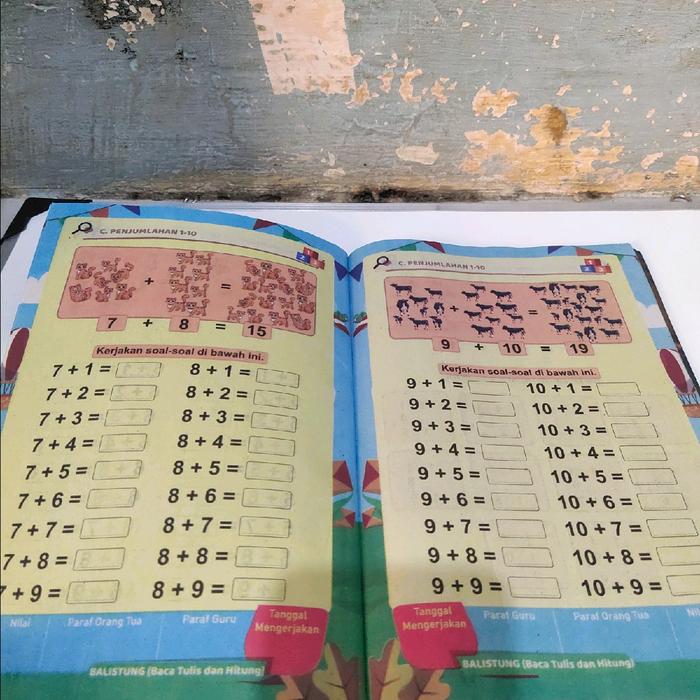 C. PENJUMLAHAN 1-10
7 + 8 = 15
Kerjakan soal-soal di bawah ini.
7 + 1 = 8 + 1 =
7 + 2 = 8 + 2 =
7 + 3 = 8 + 3 =
7 + 4 = 8 + 4 =
7 + 5 = 8 + 5 =
7 + 6 = 8 + 6 =
7 + 7 = 8 + 7 =
7 + 8 = 8 + 8 =
7 + 9 = 8 + 9 =
Nilai Paraf Orang Tua Paraf Guru Tanggal
Mengerjakan
BALISTUNG (Baca Tulis dan Hitung)
C. PENJUMLAHAN 1-10
9 + 10 = 19
Kerjakan soal-soal di bawah ini.
9 + 1 = 10 + 1 =
9 + 2 = 10 + 2 =
9 + 3 = 10 + 3 =
9 + 4 = 10 + 4 =
9 + 5 = 10 + 5 =
9 + 6 = 10 + 6 =
9 + 7 = 10 + 7 =
9 + 8 = 10 + 8 =
9 + 9 = 10 + 9 =
Tanggal Paraf Guru Paraf Orang Tua
Mengerjakan
BALISTUNG (Baca Tulis dan Hitung)